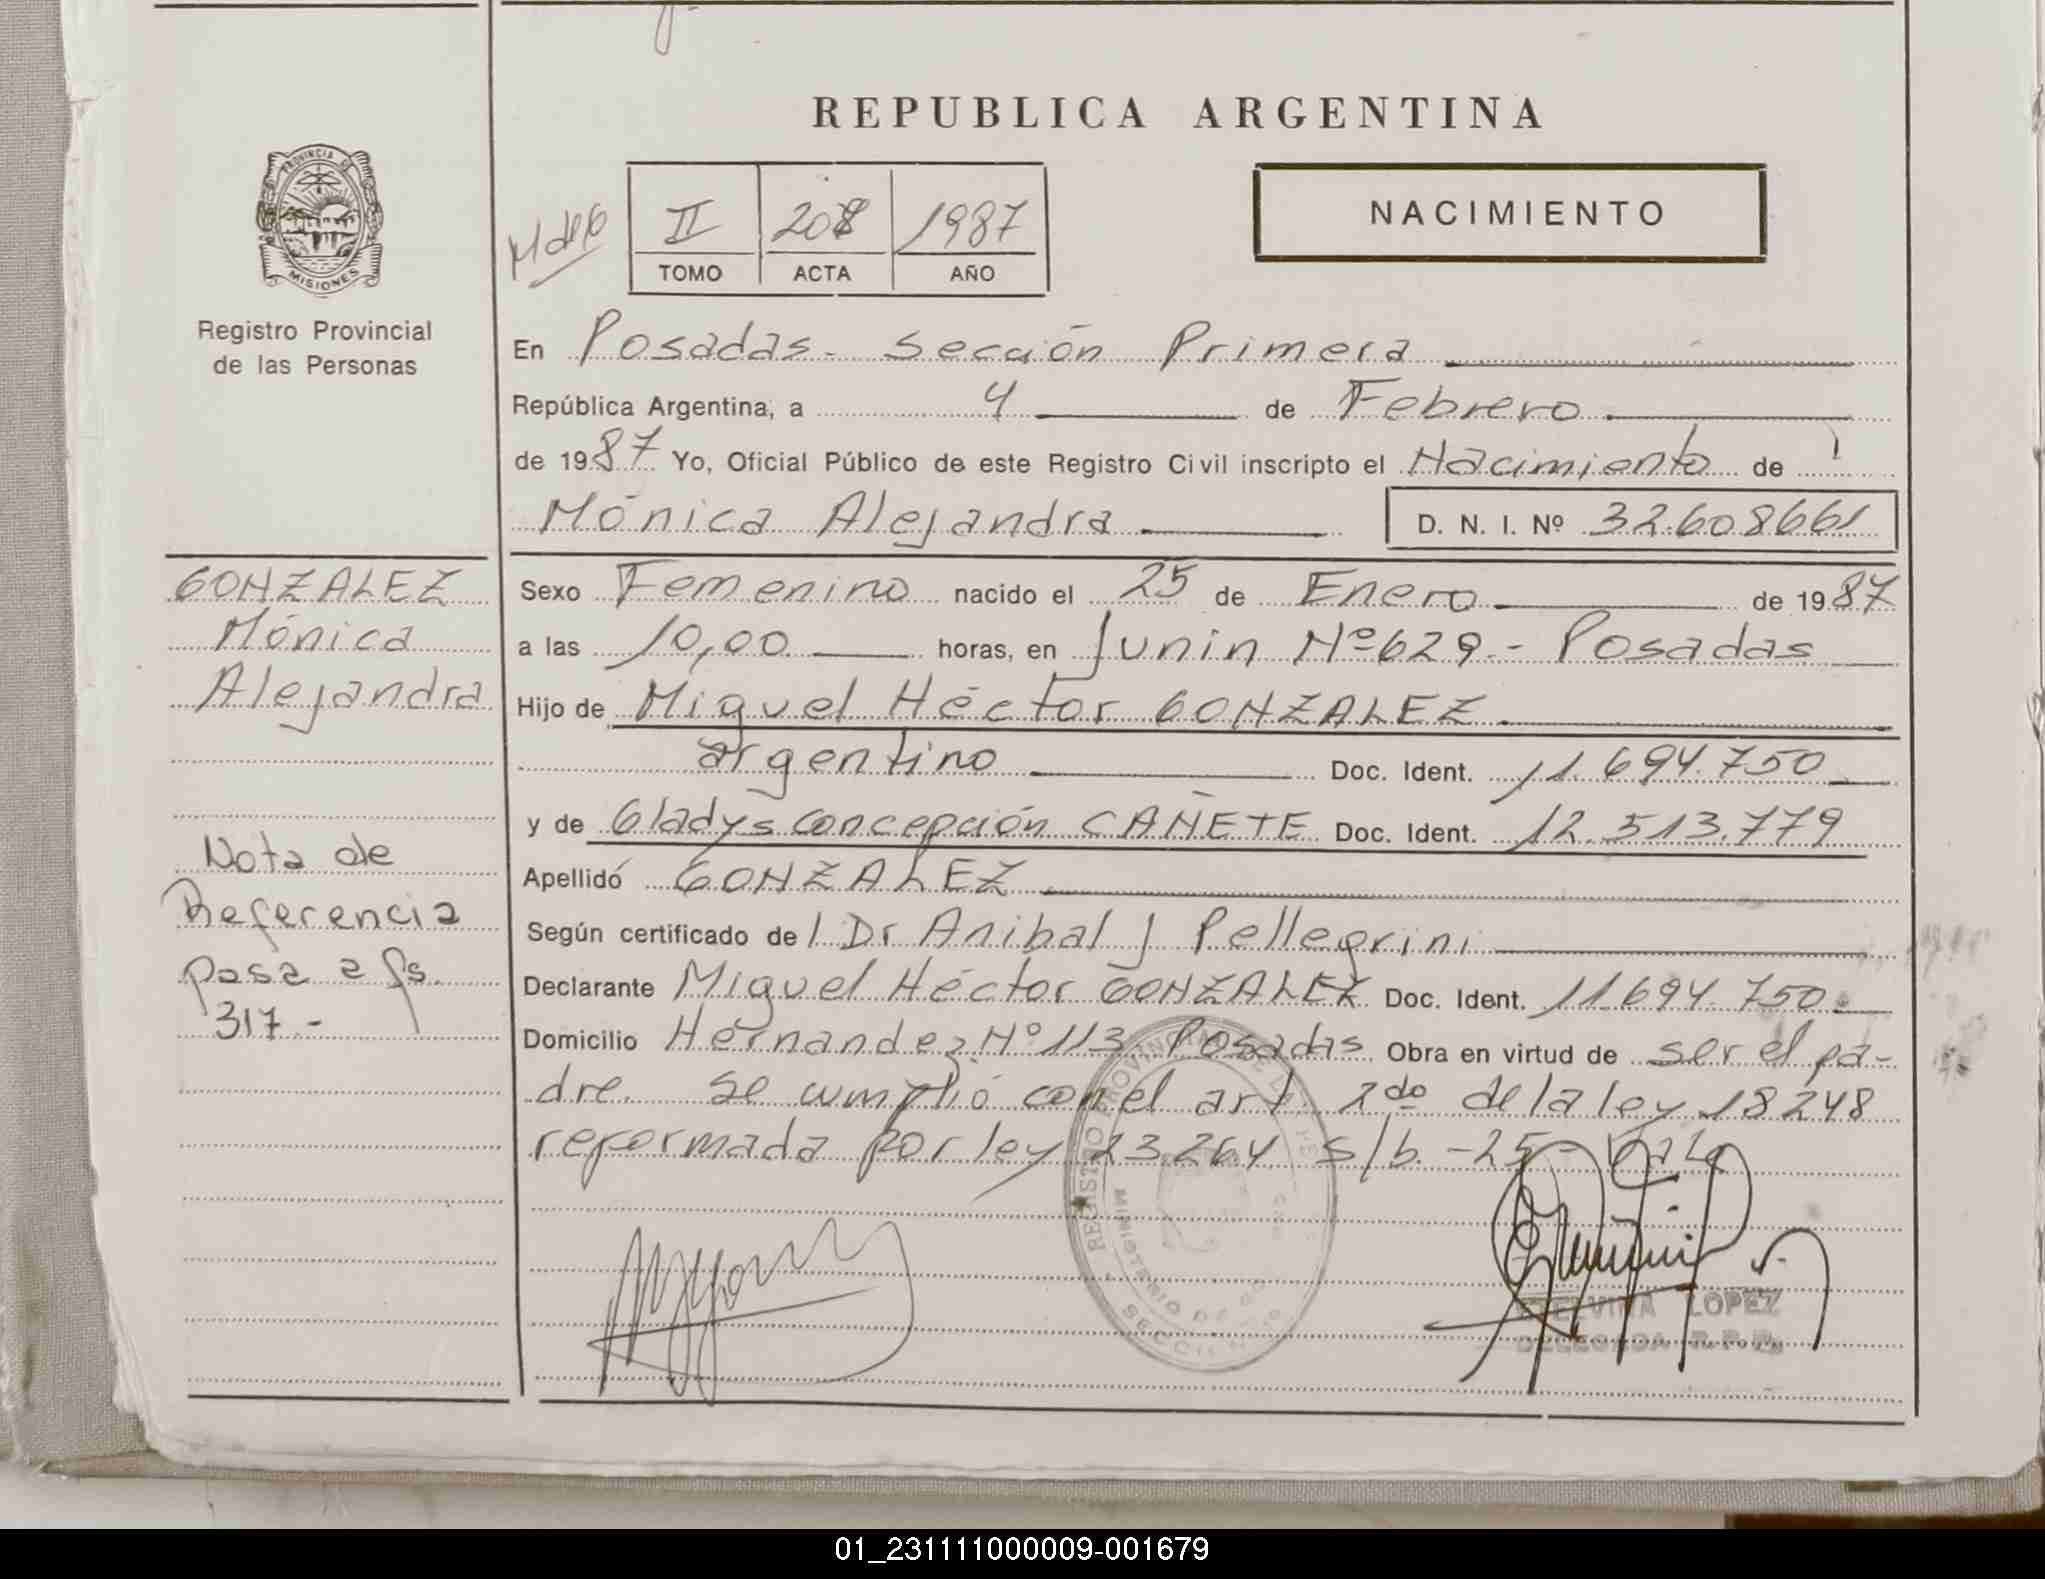 REPUBLICA ARGENTINA
PROVINCIA DE
MISIONES
Registro Provincial
de las Personas
II 208 1987
TOMO ACTA AÑO
NACIMIENTO
En Posadas - Sección Primera
República Argentina, a 4 de Febrero
de 1987 Yo, Oficial Público de este Registro Civil inscripto el Nacimiento de
Mónica Alejandra D. N. I. Nº 32.608661
GONZALEZ
Mónica
Alejandra
Nota de
Referencia
pasa a fs.
317.-
Sexo Femenino nacido el 25 de Enero de 1987
a las 10,00 horas, en Junin Nº 629 - Posadas
Hijo de Miguel Héctor GONZALEZ
argentino Doc. Ident. 11.694.750
y de Gladys Concepción CAÑETE Doc. Ident. 12.513.779
Apellido GONZALEZ
Según certificado de Dr Anibal J Pellegrini
Declarante Miguel Héctor GONZALEZ Doc. Ident. 11.694.750
Domicilio Hernandez Nº 113 Posadas Obra en virtud de ser el pa-
dre. Se cumplió con el art. 2do de la ley 18248
reformada por ley 23.264 s/b. -25- Vale
REGISTRO PROVINCIAL DE LAS
MINISTERIO DE GO
SECCI
LOPEZ
DELEGADA R.P.P.
01_231111000009-001679